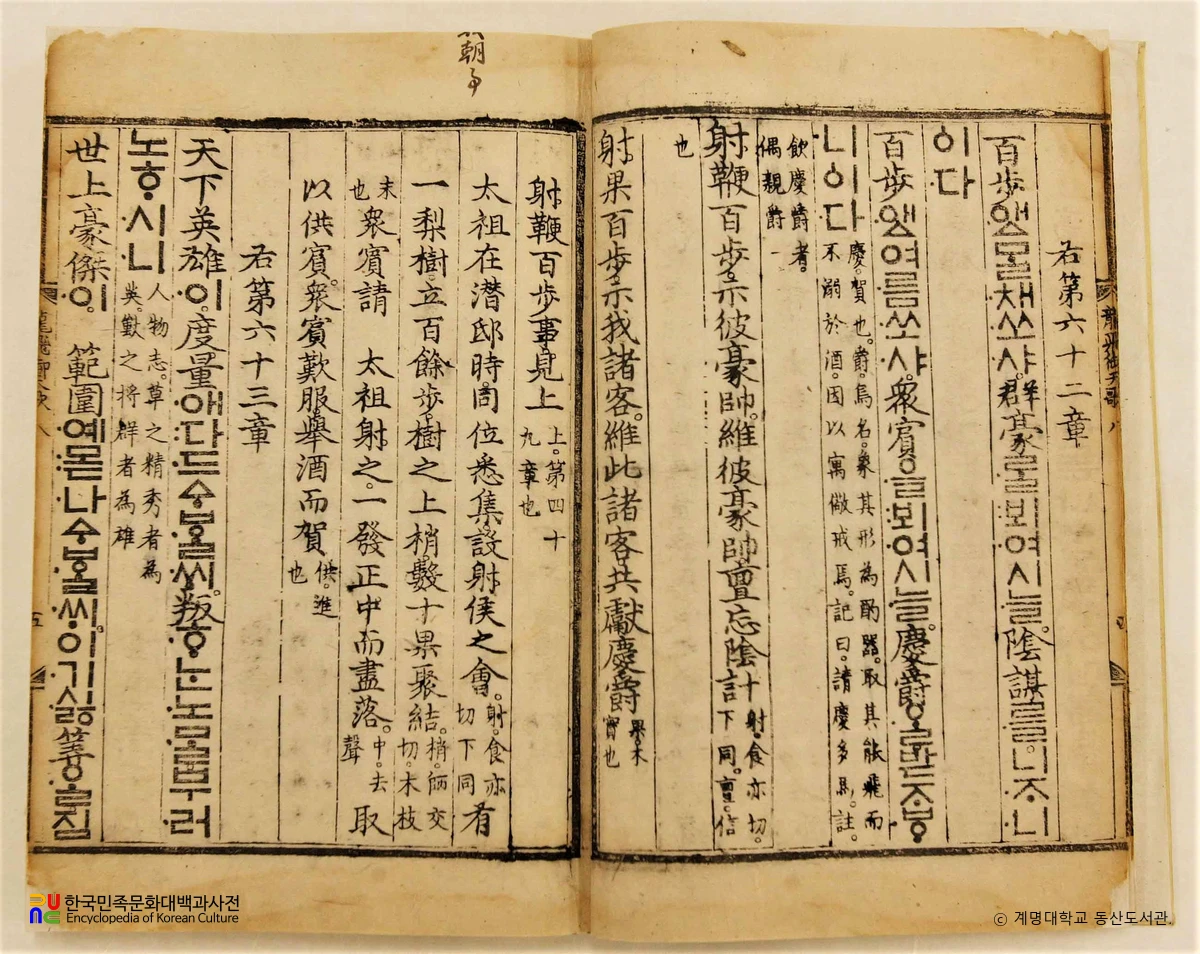 右第六十二章
百步앳ᄆᆞᆯ채쏘샤。群豪ᄅᆞᆯ뵈여시ᄂᆞᆯ。陰謀ᄅᆞᆯ니ᄌᆞ니
이다
百步앳여름쏘샤。衆賓ᄋᆞᆯ뵈여시ᄂᆞᆯ。慶爵ᄋᆞᆯ받ᄌᆞᄫᆞ
니이다 慶。賀也。爵。鳥名。象其形為酌器。取其能飛而不溺於酒。因以寓儆戒焉。記曰。請慶多馬。註。
飲慶爵者。偶親爵一
射鞭百步。示彼豪帥。維彼豪帥。亶忘陰計 射。食亦切。下同。亶。信
也
射果百步。示我諸客。維此諸客。共獻慶爵 果。木實也
射鞭百步事見上 上。第四十九章也
太祖在潛邸時。同位悉集。設射侯之會。 射。食亦切下同 有
一梨樹。立百餘步。樹之上梢。數十果聚結。 梢。師交切。木枝
末也 衆賓請 太祖射之。一發正中而盡落。 中。去聲 取
以供賓。衆賓歎服。擧酒而賀 供。進也
右第六十三章
天下英雄이。度量애다드ᅀᆞᄫᆞᆯᄊᆡ。叛ᄒᆞᄂᆞᆫ노ᄆᆞᆯ부러
노ᄒᆞ시니 人物志。草之精秀者為英。獸之將群者為雄
世上豪傑이。範圍예몯나ᅀᆞᄫᆞᆯᄊᆡ。이기싫筭ᄋᆞᆯ짐
한국민족문화대백과사전
Encyclopedia of Korean Culture
ⓒ 계명대학교 동산도서관.